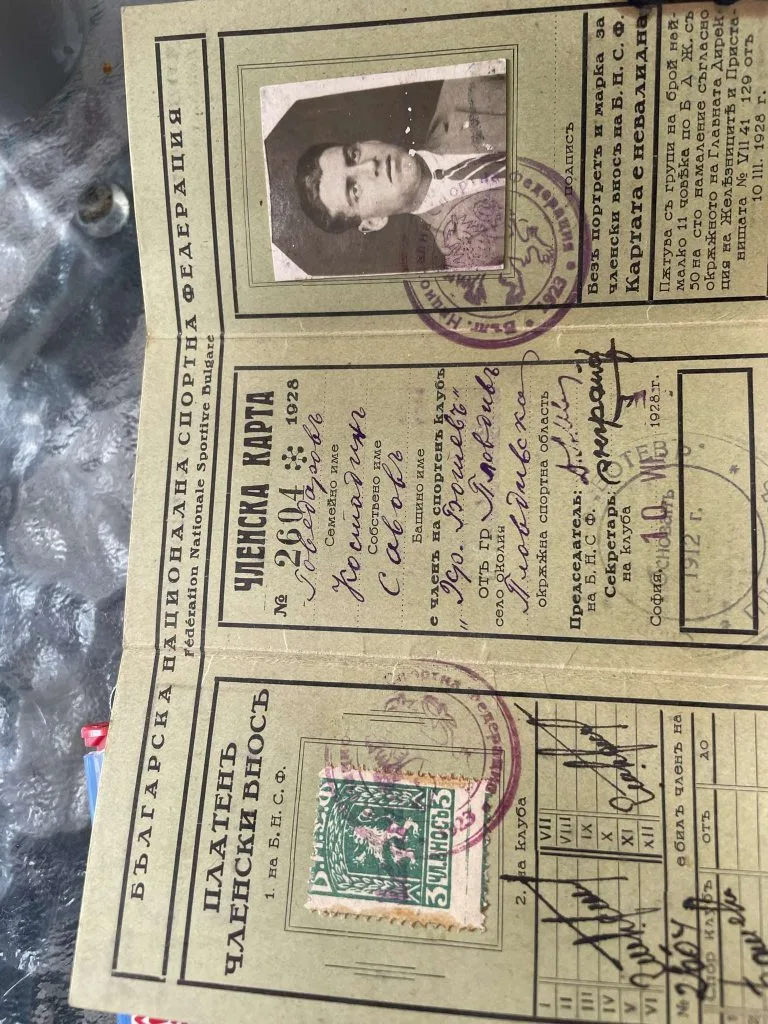 БЪЛГАРСКА НАЦИОНАЛНА СПОРТНА ФЕДЕРАЦИЯ
Fédération Nationale Sportive Bulgare
ПЛАТЕНЪ
ЧЛЕНСКИ ВНОСЪ
1. на Б. Н. С. Ф.
Б.Н.С.Ф.
3 ЧЛ.ВНОСЪ 3
2. на клуба
I VII
II VIII
III IX
IV X
V XI
VI XII
№ 2604 е билъ членъ на
Спор. клубъ отъ до
ЧЛЕНСКА КАРТА
№ 2604 1928
Говедаровъ
Семейно име
Костадинъ
Собствено име
Савовъ
Бащино име
е членъ на спортенъ клубъ
„Хр. Ботевъ“
отъ гр Пловдивъ
село околия
Пловдивска
окрѫжна спортна область
Председатель:
на Б. Н. С. Ф.
Секретарь:
на клуба
София, 10 VIII 1928 г.
БОТЕВ
ОСНОВАНЪ
1912 г.
подпись
Бълг. Национална Спортна Федерация 1923
Безъ портретъ и марка за
членски вносъ на Б. Н. С. Ф.
Картата е невалидна
Пѫтува съ групи на брой най-
малко 11 човѣка по Б Д Ж. съ
50 на сто намаление съгласно
окрѫжното на Главната Дирек-
ция на Желѣзницитѣ и Приста-
нищата № VII 41 129 отъ
10 III. 1928 г.